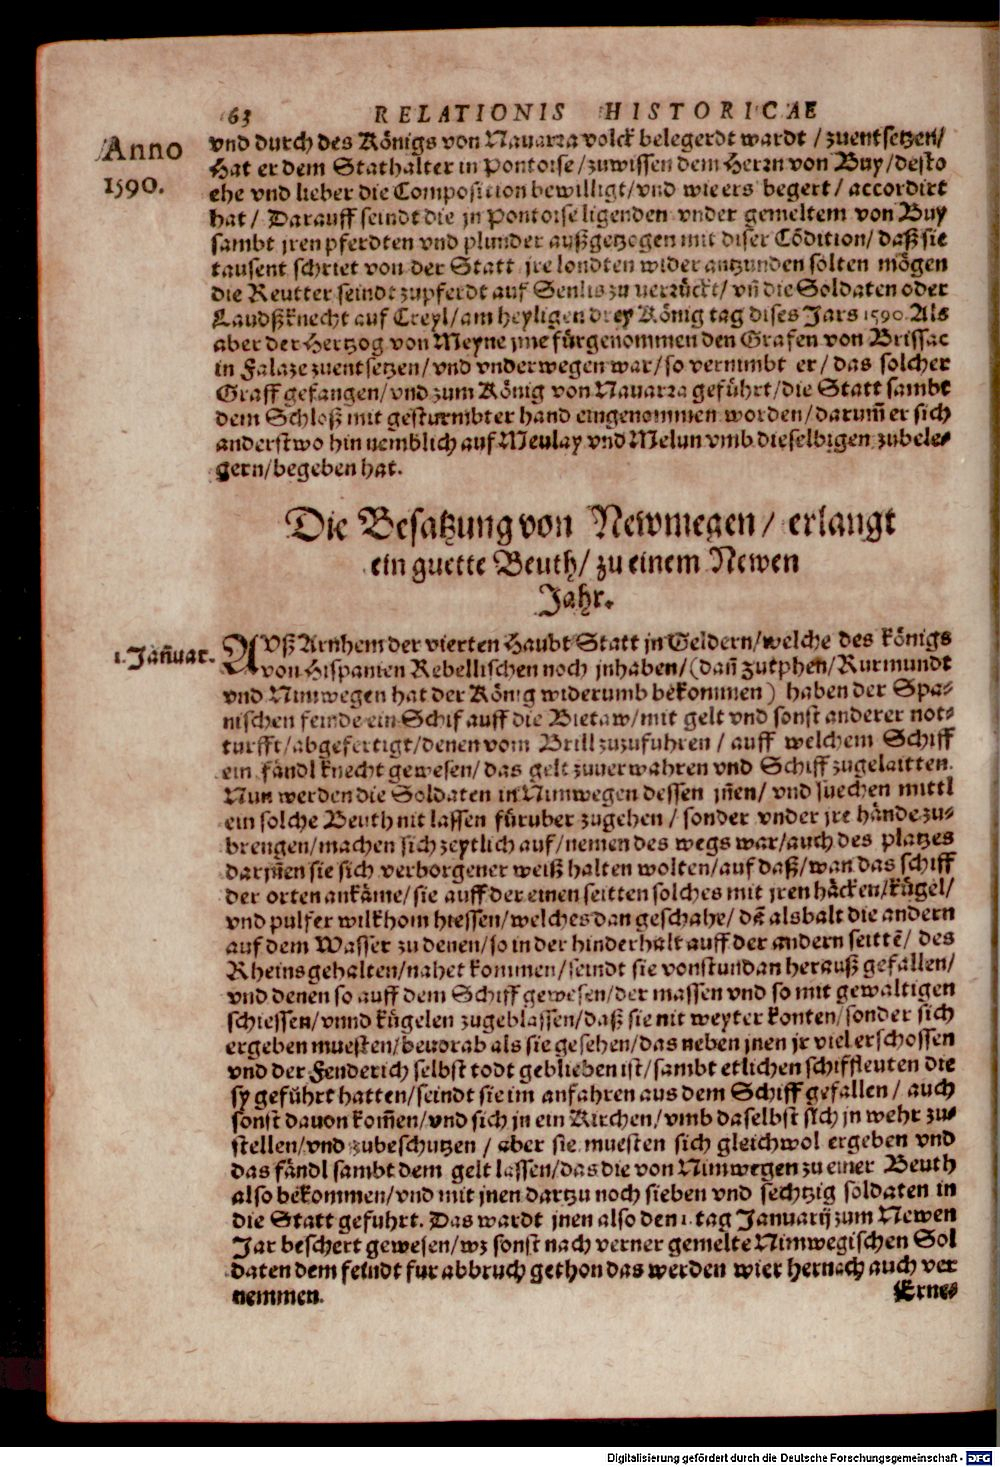 63 RELATIONIS HISTORICAE
Anno
1590.
vnd durch des Königs von Nauarra volck belegerdt wardt / zuentsetzen/
Hat er dem Stathalter in Pontoise/zuwissen dem Herrn von Buy/desto
ehe vnd lieber die Composition bewilligt/vnd wie ers begert/ accordirt
hat/ Darauff seindt die jn Pontoise ligenden vnder gemeltem von Buy
sambt jren pferdten vnd plunder außgetzogen mit diser Cōdition/ daß sie
tausent schriet von der Statt jre londten wider antzunden solten mögen
die Reutter seindt zupferdt auf Senlis zu verrückt/ vn̄ die Soldaten oder
Laudßknecht auf Creyl/am heyligen drey König tag dises Jars 1590. Als
aber der Hertzog von Meyne jme fürgenommen den Grafen von Brissac
in Falaze zuentsetzen/vnd vnderwegen war/so vernimbt er/das solcher
Graff gefangen/vnd zum König von Nauarra geführt/die Statt sambt
dem Schloß mit gesturmbter hand eingenommen worden/darum̄ er sich
anderstwo hin nemblich auf Meulay vnd Melun vmb dieselbigen zubele-
gern/begeben hat.
Die Besatzung von Newmegen/ erlangt
ein guette Beuth/ zu einem Newen
Jahr.
1. Jan̄uar.
AVß Arnhem der vierten Haubt Statt jn Geldern/welche des königs
von Hispanien Rebellischen noch jnhaben/(dan̄ Zutphen/Rurmundt
vnd Nimwegen hat der König widerumb bekommen) haben der Spa-
nischen feinde ein Schif auff die Bietaw/mit gelt vnd sonst anderer not-
turfft/abgefertigt/denen vom Brill zuzufuhren/ auff welchem Schiff
ein fändl knecht gewesen/das gelt zuuerwahren vnd Schiff zugelaitten.
Nun werden die Soldaten in Nimwegen dessen jn̄en/ vnd suechen mittl
ein solche Beuth nit lassen fürüber zugehen/ sonder vnder jre hände zu-
brengen/machen sich zeytlich auf/nemen des wegs war/auch des platzes
darjn̄en sie sich verborgener weiß halten wolten/auf daß/wan das schiff
der orten ankäme/sie auff der einen seitten solches mit jren häcken/kügel/
vnd pulfer wilkhom hiessen/welches dan geschahe/ dā alsbalt die andern
auf dem Wasser zu denen/so in der hinderhalt auff der andern seittē/ des
Rheins gehalten/nahet kommen/seindt sie vonstundan herauß gefallen/
vnd denen so auff dem Schiff gewesen/der massen vnd so mit gewaltigen
schiessen/vnnd kügelen zugeblassen/daß sie nit weyter konten/sonder sich
ergeben muesten/beuorab als sie gesehen/das neben jnen jr viel erschossen
vnd der Fenderich selbst todt geblieben ist/sambt etlichen schiffleuten die
sy geführt hatten/seindt sie im anfahren aus dem Schiff gefallen/ auch
sonst dauon kom̄en/vnd sich jn ein Kirchen/vmb daselbst sich jn wehr zu-
stellen/vnd zubeschutzen / aber sie muesten sich gleichwol ergeben vnd
das fändl sambt dem gelt lassen/das die von Nimwegen zu einer Beuth
also bekommen/vnd mit jnen dartzu noch sieben vnd sechtzig soldaten in
die Statt gefuhrt. Das wardt jnen also den 1. tag Januarij zum Newen
Jar beschert gewesen/wz sonst nach verner gemelte Nimwegischen Sol
daten dem feindt fur abbruch gethon das werden wier hernach auch ver
nemmen.
Erne-
Digitalisierung gefördert durch die Deutsche Forschungsgemeinschaft - DFG